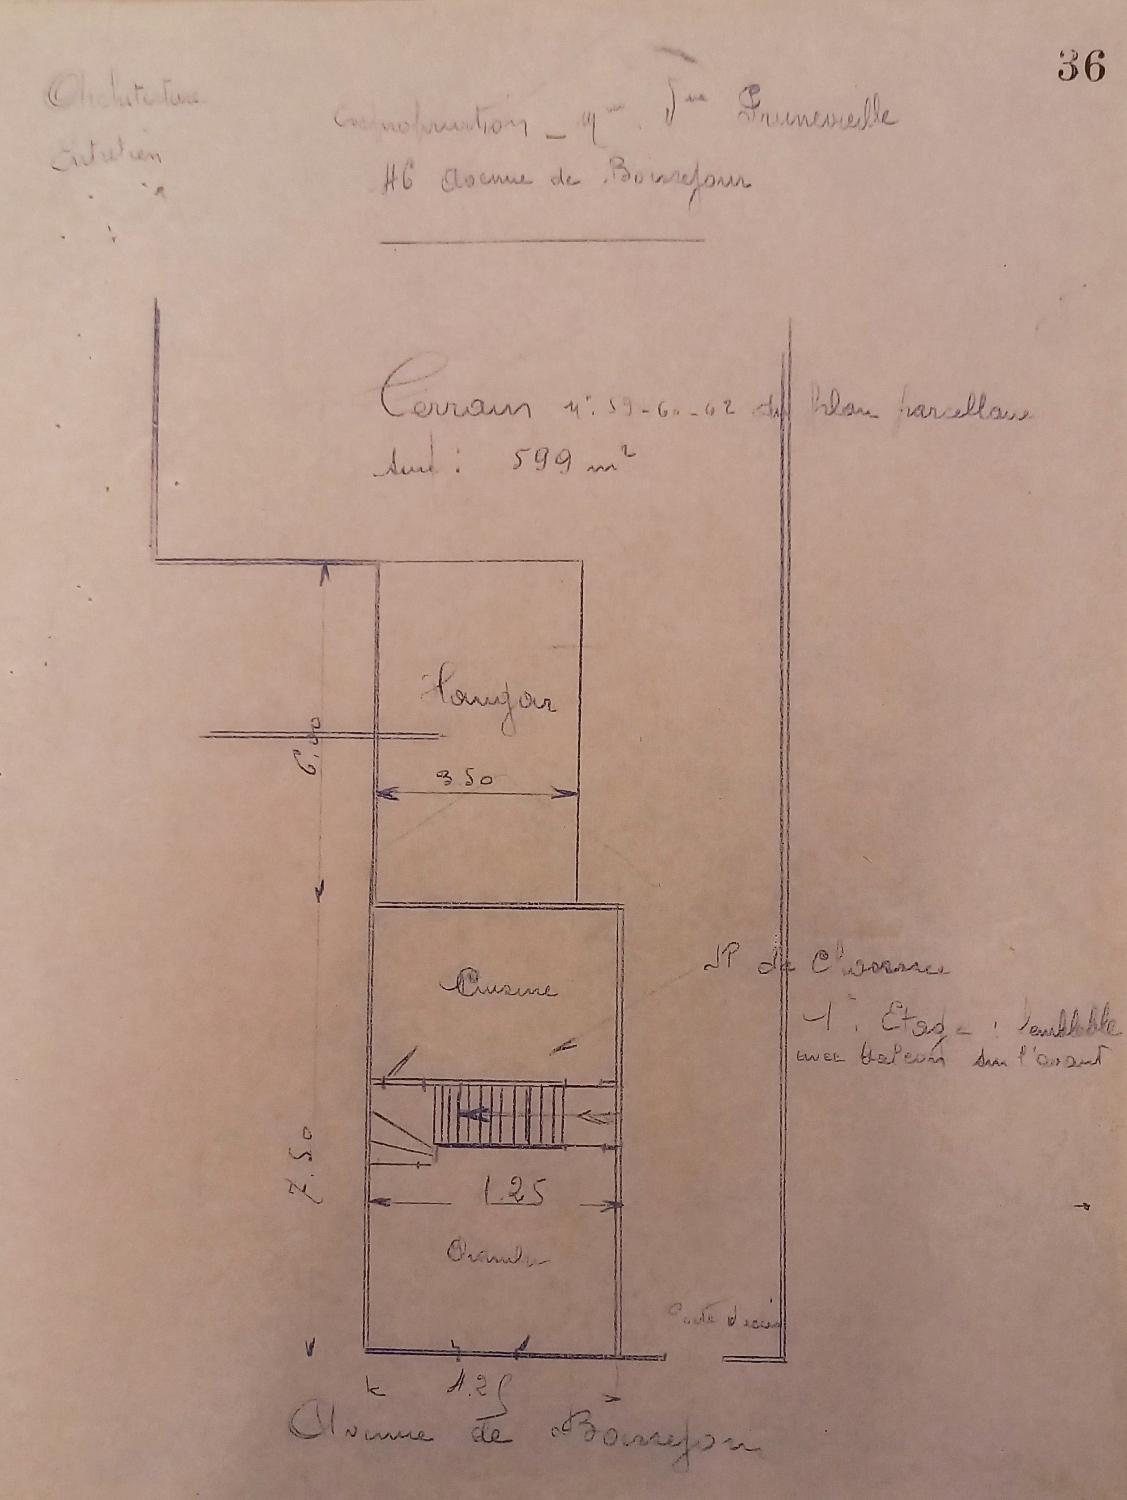 36
Architecture
Entretien
Expropriation _ Mme Vve Prunevieille
46 Avenue de Boisrefour
Terrain n°. 59-60-62 du Plan parcellaire
Sur : 599 m²
Hangar
6,00
3 50
Cuisine
de Chaussee
1°. Etage : semblable
avec balcon sur l'avant
7.50
1.25
Chambre
Porte d'accès
4.25
Avenue de